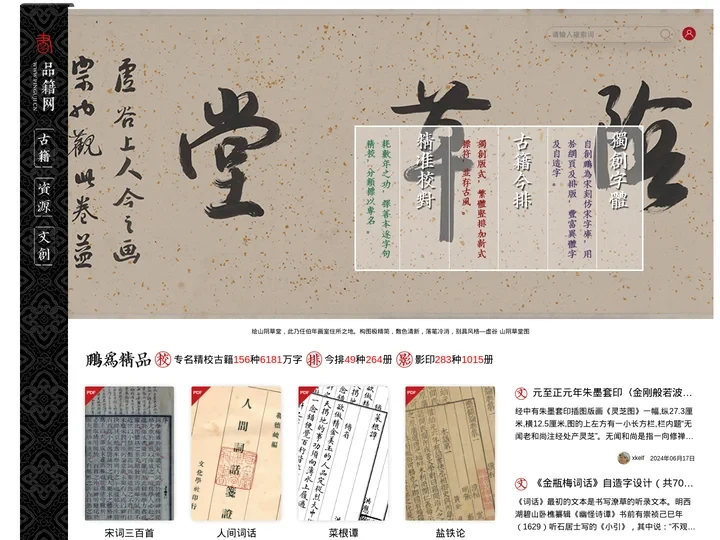 書
品籍网
WWW.PINGJI.CN
古籍
資源
文創
请输入搜索词
绘山阴草堂
虚谷上人今之画
宗也觀此卷益
獨創字體
自創鵬為宋刻仿宋字庫 用
於網頁及排版 豐富異體字
及自造字。
古籍今排
獨創版式 繁體竪排加新式
標符 並存古風。
精准校對
耗數年之功 擇善本逐字句
精校 分類標以專名。
绘山阴草堂，此乃任伯年画室住所之地。构图极精简，敷色清新，落笔冷消，别具风格—虚谷 山阴草堂图
鵬爲精品 校 专名精校古籍156种6181万字 排 今排49种264册 影 影印283种1015册
PDF
PDF
人間詞話箋證
文化學社印行
PDF
菜根譚
PDF
宋词三百首
人间词话
菜根谭
盐铁论
文 元至正元年朱墨套印《金刚般若波...
经中有朱墨套印插图版画《灵芝图》一幅,纵27.3厘
米,横12.5厘米,图的上左方有一小长方栏,栏内题“无
闻老和尚注经处产灵芝”。无闻和尚是指一向修禅...
xkelf 2024年06月17日
文 《金瓶梅词话》自造字设计（共70...
《词话》最初的文本是书写潦草的听录文本。明西
湖碧山卧樵纂辑《幽怪诗谭》书前有崇祯己巳年
（1629）听石居士写的《小引》，其中说：“不观...